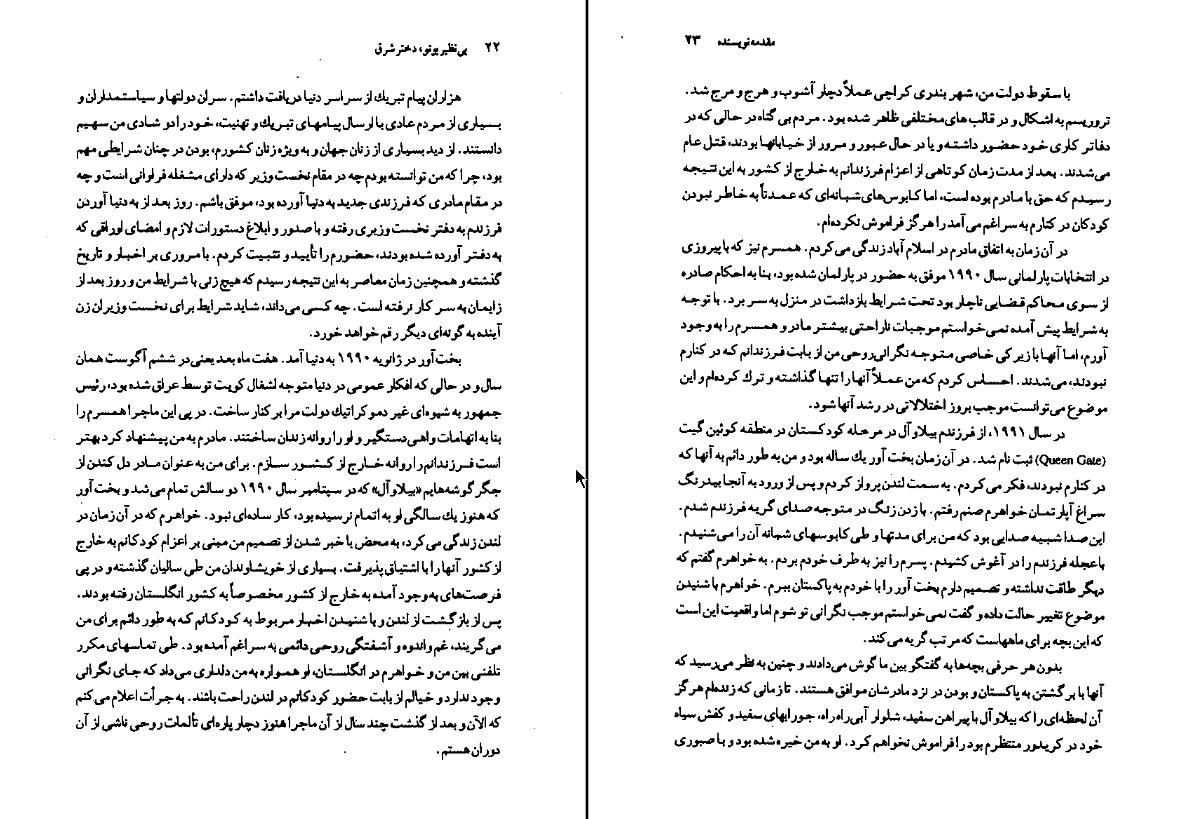 ۲۲ بی‌نظیر بوتو، دختر شرق
هزاران پیام تبریك از سراسر دنیا دریافت داشتم. سران دولتها و سیاستمداران و
بسیاری از مردم عادی با ارسال پیامهای تبریك و تهنیت، خود را دو شادی من سهیم
دانستند. از دید بسیاری از زنان جهان و به ویژه زنان کشورم، بودن در چنان شرایطی مهم
بود، چرا که من توانسته بودم چه در مقام نخست وزیر که دارای مشغله فراوانی است و چه
در مقام مادری که فرزندی جدید به دنیا آورده بود، موفق باشم. روز بعد از به دنیا آوردن
فرزندم به دفتر نخست وزیری رفته و با صدور و ابلاغ دستورات لازم و امضای اوراقی که
به دفتر آورده شده بودند، حضورم را تأیید و تثبیت کردم. با مروری بر اخبار و تاریخ
گذشته و همچنین زمان معاصر به این نتیجه رسیدم که هیچ زنی با شرایط من و روز بعد از
زایمان به سر کار نرفته است. چه کسی می‌داند، شاید شرایط برای نخست وزیران زن
آینده به گونه‌ای دیگر رقم خواهد خورد.
بخت‌آور در ژانویه ۱۹۹۰ به دنیا آمد. هفت ماه بعد یعنی در ششم آگوست همان
سال و در حالی که افکار عمومی در دنیا متوجه اشغال کویت توسط عراق شده بود، رئیس
جمهور به شیوه‌ای غیر دموکراتیك دولت مرا برکنار ساخت. در پی این ماجرا همسرم را
بنا به اتهامات واهی دستگیر و او را روانه زندان ساختند. مادرم به من پیشنهاد کرد بهتر
است فرزندانم را روانه خارج از کشور سازم. برای من به عنوان مادر دل کندن از
جگرگوشه‌هایم «بیلاوآل» که در سپتامبر سال ۱۹۹۰ دو سالش تمام می‌شد و بخت آور
که هنوز یك سالگی او به اتمام نرسیده بود، کار ساده‌ای نبود. خواهرم که در آن زمان در
لندن زندگی می‌کرد، به محض با خبر شدن از تصمیم من مبنی بر اعزام کودکانم به خارج
از کشور آنها را با اشتیاق پذیرفت. بسیاری از خویشاوندان من طی سالیان گذشته و در پی
فرصت‌های به وجود آمده به خارج از کشور مخصوصاً به کشور انگلستان رفته بودند.
پس از بازگشت از لندن و با شنیدن اخبار مربوط به کودکانم که به طور دائم برای من
می‌گریند، غم و اندوه و آشفتگی روحی دائمی به سراغم آمده بود. طی تماسهای مکرر
تلفنی بین من و خواهرم در انگلستان، او همواره به من دلداری می‌داد که جای نگرانی
وجود ندارد و خیالم از بابت حضور کودکانم در لندن راحت باشد. به جرأت اعلام می‌کنم
که الآن و بعد از گذشت چند سال از آن ماجرا هنوز دچار پاره‌ای تألمات روحی ناشی از آن
دوران هستم.
مقدمه نویسنده ۲۳
با سقوط دولت من، شهر بندری کراچی عملاً دچار آشوب و هرج و مرج شد.
تروریسم به اشکال و در قالب های مختلفی ظاهر شده بود. مردم بی گناه در حالی که در
دفاتر کاری خود حضور داشته و یا در حال عبور و مرور از خیابانها بودند، قتل عام
می‌شدند. بعد از مدت زمان کوتاهی از اعزام فرزندانم به خارج از کشور به این نتیجه
رسیدم که حق با مادرم بوده است، اما کابوس‌های شبانه‌ای که عمدتاً به خاطر نبودن
کودکان در کنارم به سراغم می‌آمد را هرگز فراموش نکرده‌ام.
در آن زمان به اتفاق مادرم در اسلام آباد زندگی می‌کردم. همسرم نیز که با پیروزی
در انتخابات پارلمانی سال ۱۹۹۰ موفق به حضور در پارلمان شده بود، بنا به احکام صادره
از سوی محاکم قضایی ناچار بود تحت شرایط بازداشت در منزل به سر برد. با توجه
به شرایط پیش آمده نمی‌خواستم موجبات ناراحتی بیشتر مادر و همسرم را به وجود
آورم، اما آنها با زیرکی خاصی متوجه نگرانی روحی من از بابت فرزندانم که در کنارم
نبودند، می‌شدند. احساس کردم که من عملاً آنها را تنها گذاشته و ترك کرده‌ام و این
موضوع می‌توانست موجب بروز اختلالاتی در رشد آنها شود.
در سال ۱۹۹۱، از فرزندم بیلاوآل در مرحله کودکستان در منطقه کوئین گیت
(Queen Gate) ثبت نام شد. در آن زمان بخت آور یك ساله بود و من به طور دائم به آنها که
در کنارم نبودند، فکر می‌کردم. به سمت لندن پرواز کردم و پس از ورود به آنجا بیدرنگ
سراغ آپارتمان خواهرم صنم رفتم. با زدن زنگ در متوجه صدای گریه فرزندم شدم.
این صدا شبیه صدایی بود که من برای مدتها و طی کابوسهای شبانه آن را می‌شنیدم.
با عجله فرزندم را در آغوش کشیدم. پسرم را نیز به طرف خودم بردم. به خواهرم گفتم که
دیگر طاقت نداشته و تصمیم دارم بخت آور را با خودم به پاکستان ببرم. خواهرم با شنیدن
موضوع تغییر حالت داده و گفت نمی‌خواستم موجب نگرانی تو شوم اما واقعیت این است
که این بچه برای ماههاست که مرتب گریه می‌کند.
بدون هر حرفی بچه‌ها به گفتگو بین ما گوش می‌دادند و چنین به نظر می‌رسید که
آنها با برگشتن به پاکستان و بودن در نزد مادرشان موافق هستند. تا زمانی که زنده‌ام هرگز
آن لحظه‌ای را که بیلاوآل با پیراهن سفید، شلوار آبی راه راه، جورابهای سفید و کفش سیاه
خود در کریدور منتظرم بود را فراموش نخواهم کرد. او به من خیره شده بود و با صبوری